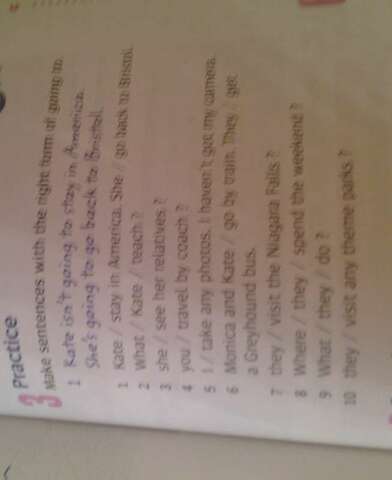 3 Practice
Make sentences with the right form of going to.
1 Kate isn't going to stay in America.
She's going to go back to Bristol.
1 Kate / stay in America. She / go back to Bristol.
2 What / Kate / teach?
3 she / see her relatives?
4 you / travel by coach?
5 I / take any photos. I haven't got my camera.
6 Monica and Kate / go by train. They / get
a Greyhound bus.
7 they / visit the Niagara Falls?
8 Where / they / spend the weekend?
9 What / they / do?
10 they / visit any theme parks?